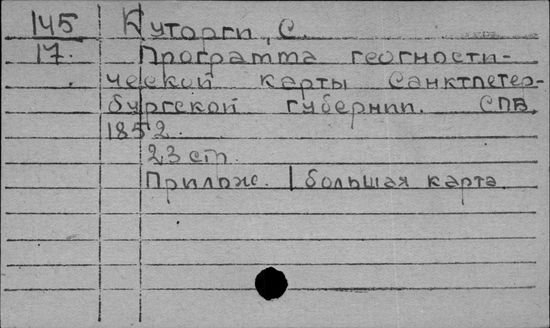 145 Куторги, С.
17. Программа геогности-
ческой карты Санктпетер-
бургской губернии. СПВ.
1852.
23 ст.
Прилож. 1 большая карта.